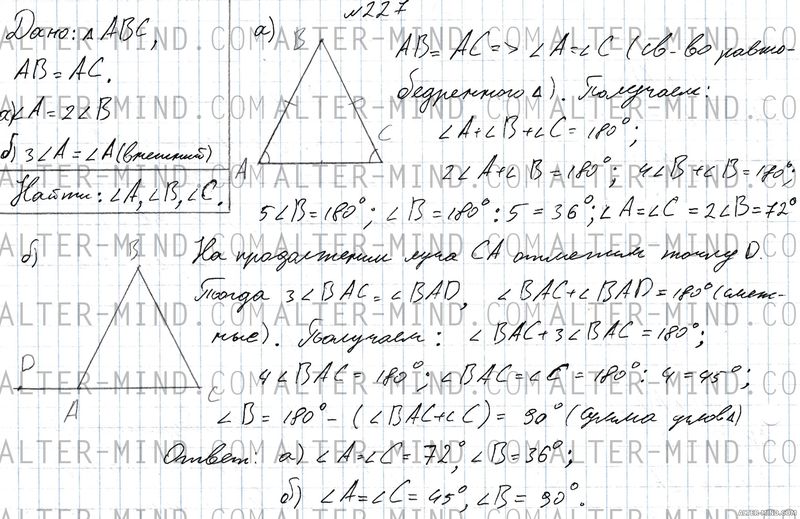 №227
Дано: △ABC,
AB=AC.
а) ∠A=2∠B
б) 3∠A=∠A(внешний)
Найти: ∠A, ∠B, ∠C.
а)
B
A
C
AB=AC=>∠A=∠C (св-во равно-
бедренного △). Получаем:
∠A+∠B+∠C=180°;
2∠A+∠B=180°; 4∠B+∠B=180°;
5∠B=180°; ∠B=180°:5=36°; ∠A=∠C=2∠B=72°
б)
B
D
A
C
На продолжении луча CA отметим точку D.
Тогда 3∠BAC=∠BAD, ∠BAC+∠BAD=180° (смеж-
ные). Получаем: ∠BAC+3∠BAC=180°;
4∠BAC=180°; ∠BAC=∠C=180°:4=45°;
∠B=180°-(∠BAC+∠C)=90° (сумма углов △)
Ответ: а) ∠A=∠C=72°, ∠B=36°;
б) ∠A=∠C=45°, ∠B=90°.
ALTER-MIND.COM